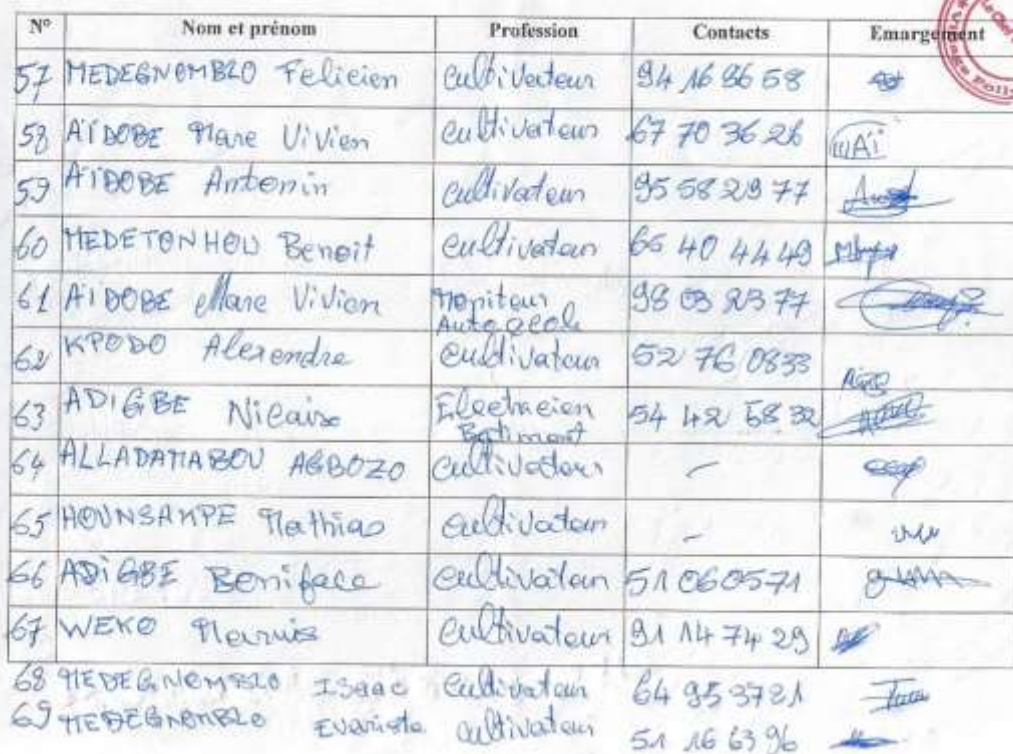 N° Nom et prénom Profession Contacts Emargement
57 MEDEGNOMBLO Felicien cultivateur 94 16 86 58
58 AÏDOBE Marc Vivien cultivateur 67 70 36 26 MAï
59 AÏDOBE Antonin cultivateur 95 58 29 77
60 MEDETONHOU Benoit cultivateur 66 40 44 49
61 AÏDOBE Marc Vivien Moniteur 98 03 23 77
Auto ecole
62 KPODO Alexendre cultivateur 52 76 0833
63 ADIGBE Nicaise Electricien 54 42 58 32
Batiment
64 ALLADAMABOU AGBOZO cultivateur -
65 HOUNSAKPE Mathias cultivateur -
66 ADIGBE Boniface cultivateur 51 060571
67 WEKO cultivateur 91 14 74 29
68 MEDEGNOMBLO Isaac cultivateur 64 953721
69 MEDEGNOMBLO Evariste cultivateur 51 16 63 96